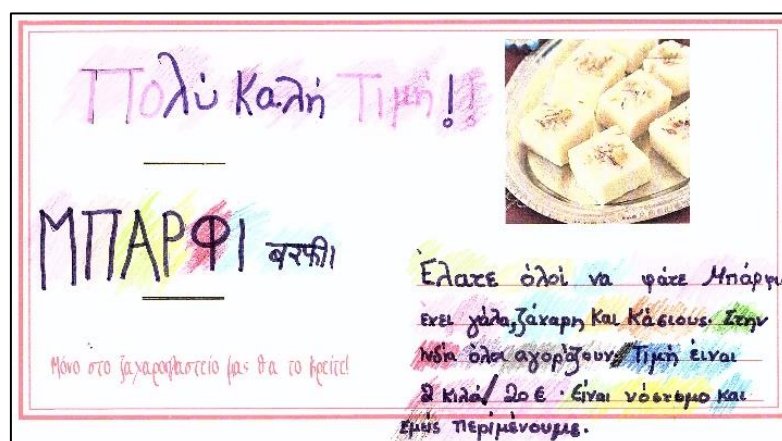 Πολύ Καλή Τιμή!!
ΜΠΑΡΦΙ बरफी।
Μόνο στο ζαχαροπλαστείο μας θα το βρείτε!
Έλατε όλοι να φάτε Μπάρφι
έχει γάλα, ζάχαρη και Κάσιους. Στην
Ινδία όλοι αγοράζουν. Τιμή είναι
2 κιλά/ 20 €. Είναι νόστιμο και
εμείς περιμένουμε.